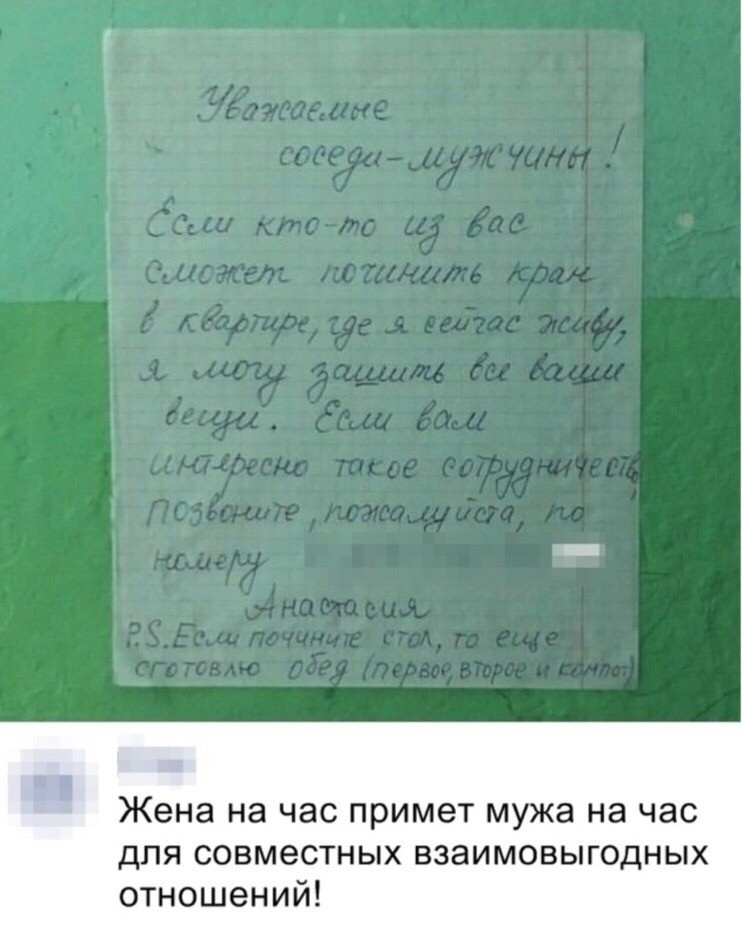 Уважаемые
соседи-мужчины!
Если кто-то из вас
сможет починить кран
в квартире, где я сейчас живу,
я могу зашить все ваши
вещи. Если вам
интересно такое сотрудничеств
позвоните, пожалуйста, по
номеру
Анастасия
P.S. Если почините стол, то еще
сготовлю обед (первое, второе и компот)
Жена на час примет мужа на час
для совместных взаимовыгодных
отношений!